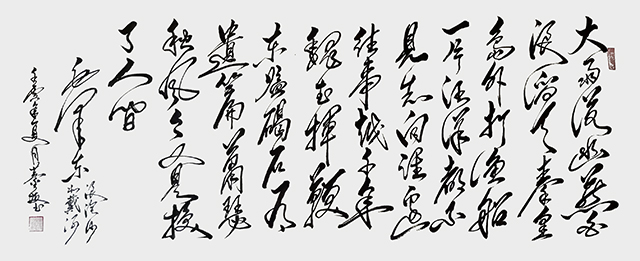 大雨落幽燕白
浪滔天秦皇
島外打渔船
一片汪洋都不
見知向谁邊
往事越千年
魏武揮鞭
东临碣石有
遺篇萧瑟
秋风今又是换
了人間
毛泽东
浪淘沙
北戴河
年夏月